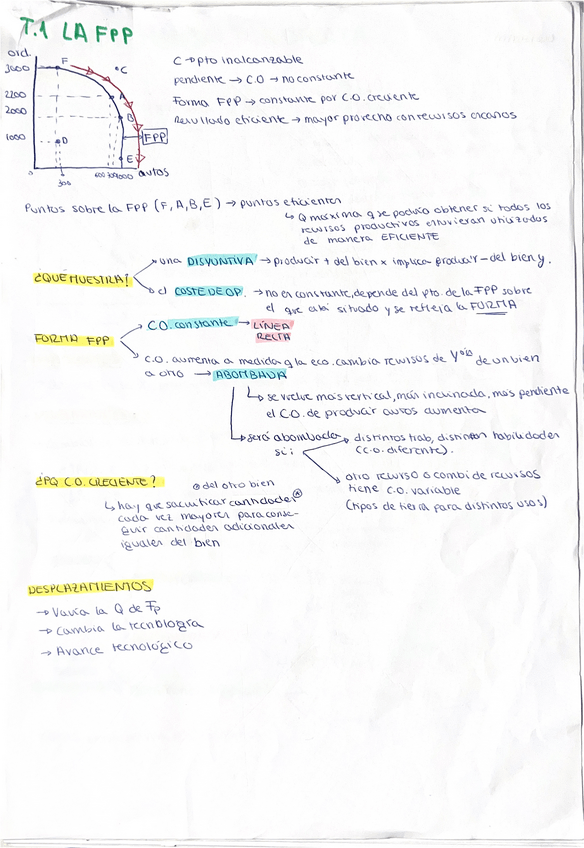 T.1 LA FPP
ord.
3000
2200
2000
1000
F
C
A
B
D
E
FPP
0
300
600 700 1000
autos
C → pto inalcanzable
pendiente → C.O → no constante
Forma FPP → constante por C.O. creciente
Resultado eficiente → mayor provecho con recursos escasos
Puntos sobre la FPP (F, A, B, E) → puntos eficientes
↳ Q máxima q se podría obtener si todos los
recursos productivos estuvieran utilizados
de manera EFICIENTE
¿QUÉ MUESTRA?
una DISYUNTIVA → producir + del bien x implica producir - del bien y.
el COSTE DE OP. → no es constante, depende del pto. de la FPP sobre
el que esté situado y se refleja la FORMA
FORMA FPP
C.O. constante → LÍNEA
RECTA
C.O. aumenta a medida q la eco. cambia recursos de de un bien
a otro → ABOMBADA
↳ se vuelve más vertical, más inclinada, más pendiente
el C.O. de producir autos aumenta
↳ será abombada
si:
distintos trab, distintas habilidades
(C.O. diferente).
otro recurso o combi de recursos
tiene C.O. variable
(tipos de tierra para distintos usos)
¿PQ C.O. CRECIENTE?
⊗ del otro bien
↳ hay que sacrificar cantidades ⊗
cada vez mayores para conse-
guir cantidades adicionales
iguales del bien
DESPLAZAMIENTOS
→ Varía la Q de Fp
→ Cambia la tecnología
→ Avance tecnológico